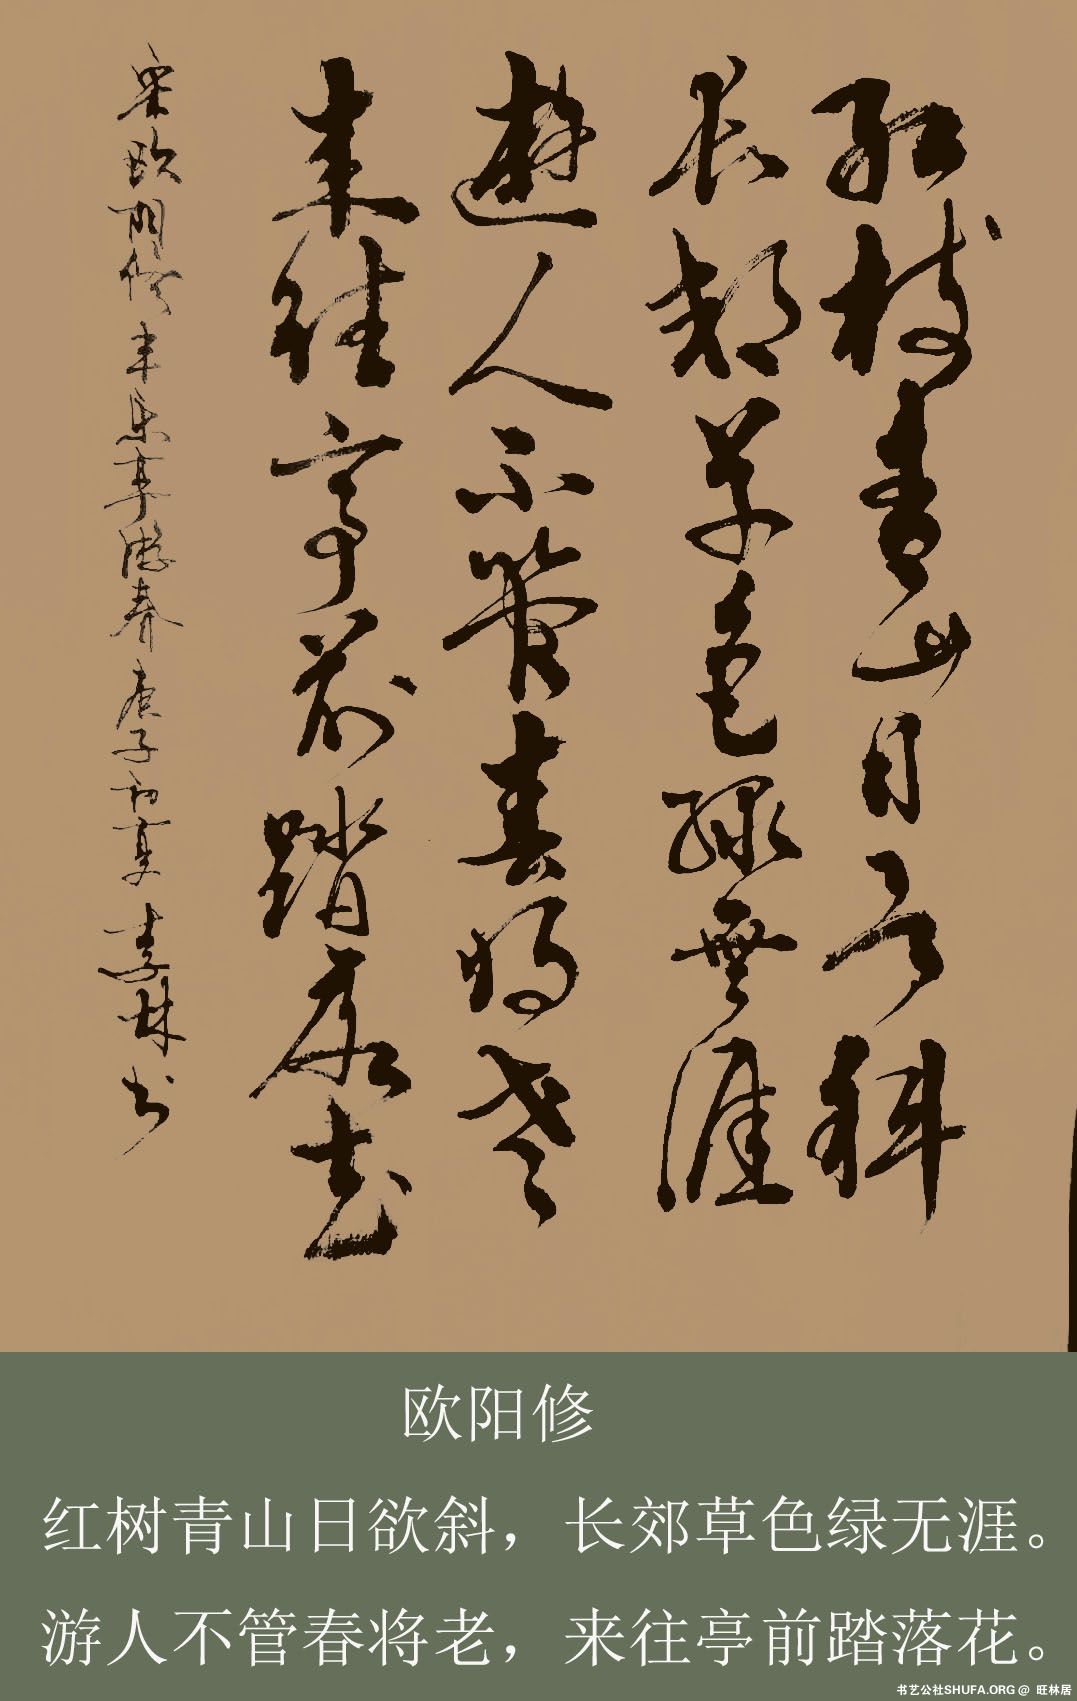 红树青山日欲斜
长郊草色绿无涯
遊人不管春将老
来往亭前踏落花
宋欧阳修丰乐亭游春庚子初夏素林书
欧阳修
红树青山日欲斜，长郊草色绿无涯。
游人不管春将老，来往亭前踏落花。
书艺公社SHUFA.ORG @ 旺林居